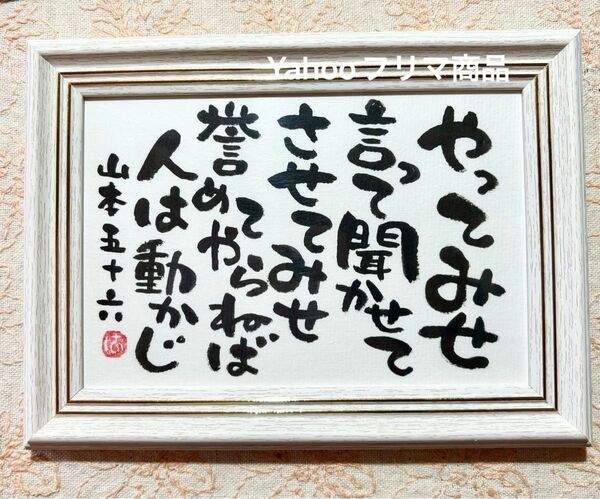 Yahooフリマ商品
やってみせ
言って聞かせて
させてみせ
誉めてやらねば
人は動かじ
山本五十六